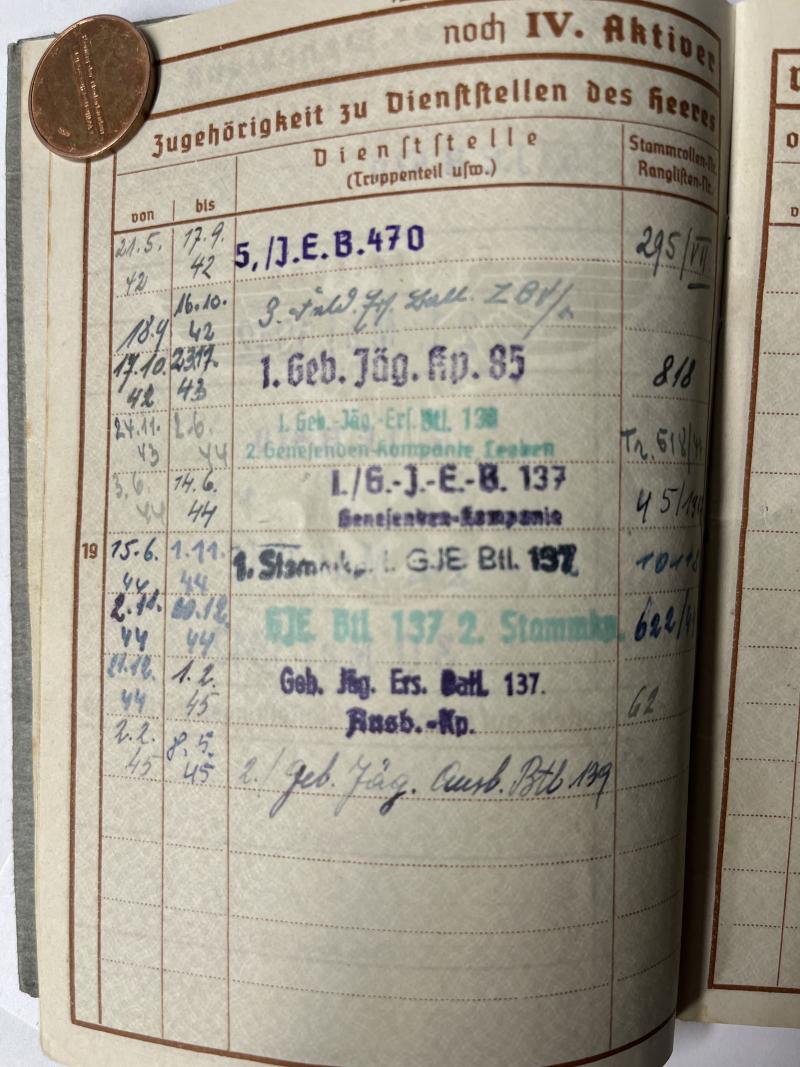 noch IV. Aktiver
Zugehörigkeit zu Dienststellen des Heeres
von
bis
Dienststelle
(Truppenteil usw.)
Stammrollen-Nr.
Ranglisten-Nr.
21.5. 42 17.9. 42 5./J.E.B.470 295/VII
18.9 16.10. 42 3. Feld. Ers. Batl.
17.10. 42 23.11. 43 1. Geb. Jäg. Kp. 85 818
24.11. 43 2.6. 44 1. Geb.-Jäg.-Ers. Btl. 138
2. Genesenden-Kompanie Leoben Tr. 518/44
3.6. 44 14.6. 44 I./G.-J.-E.-B. 137
Genesenden-Kompanie 45/
19
15.6. 44 1.11. 44 1. Stammkp. I. GJE Btl. 137
2.11. 44 20.12. 44 GJE. Btl 137 2. Stammkp. 622/
21.12. 44 1.2. 45 Geb. Jäg. Ers. Batl. 137.
Ausb.-Kp. 62
2.2. 45 8.5. 45 2./ Geb. Jäg. Ausb. Btl 139